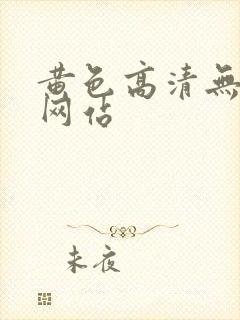 黄色高清無
网站
未夜